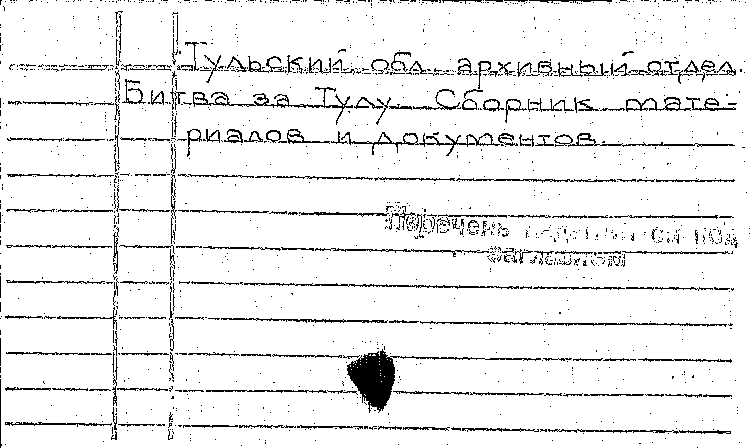 Тульский обл. архивный отдел.
Битва за Тулу. Сборник мате-
риалов и документов.
Перечень под
заглавием